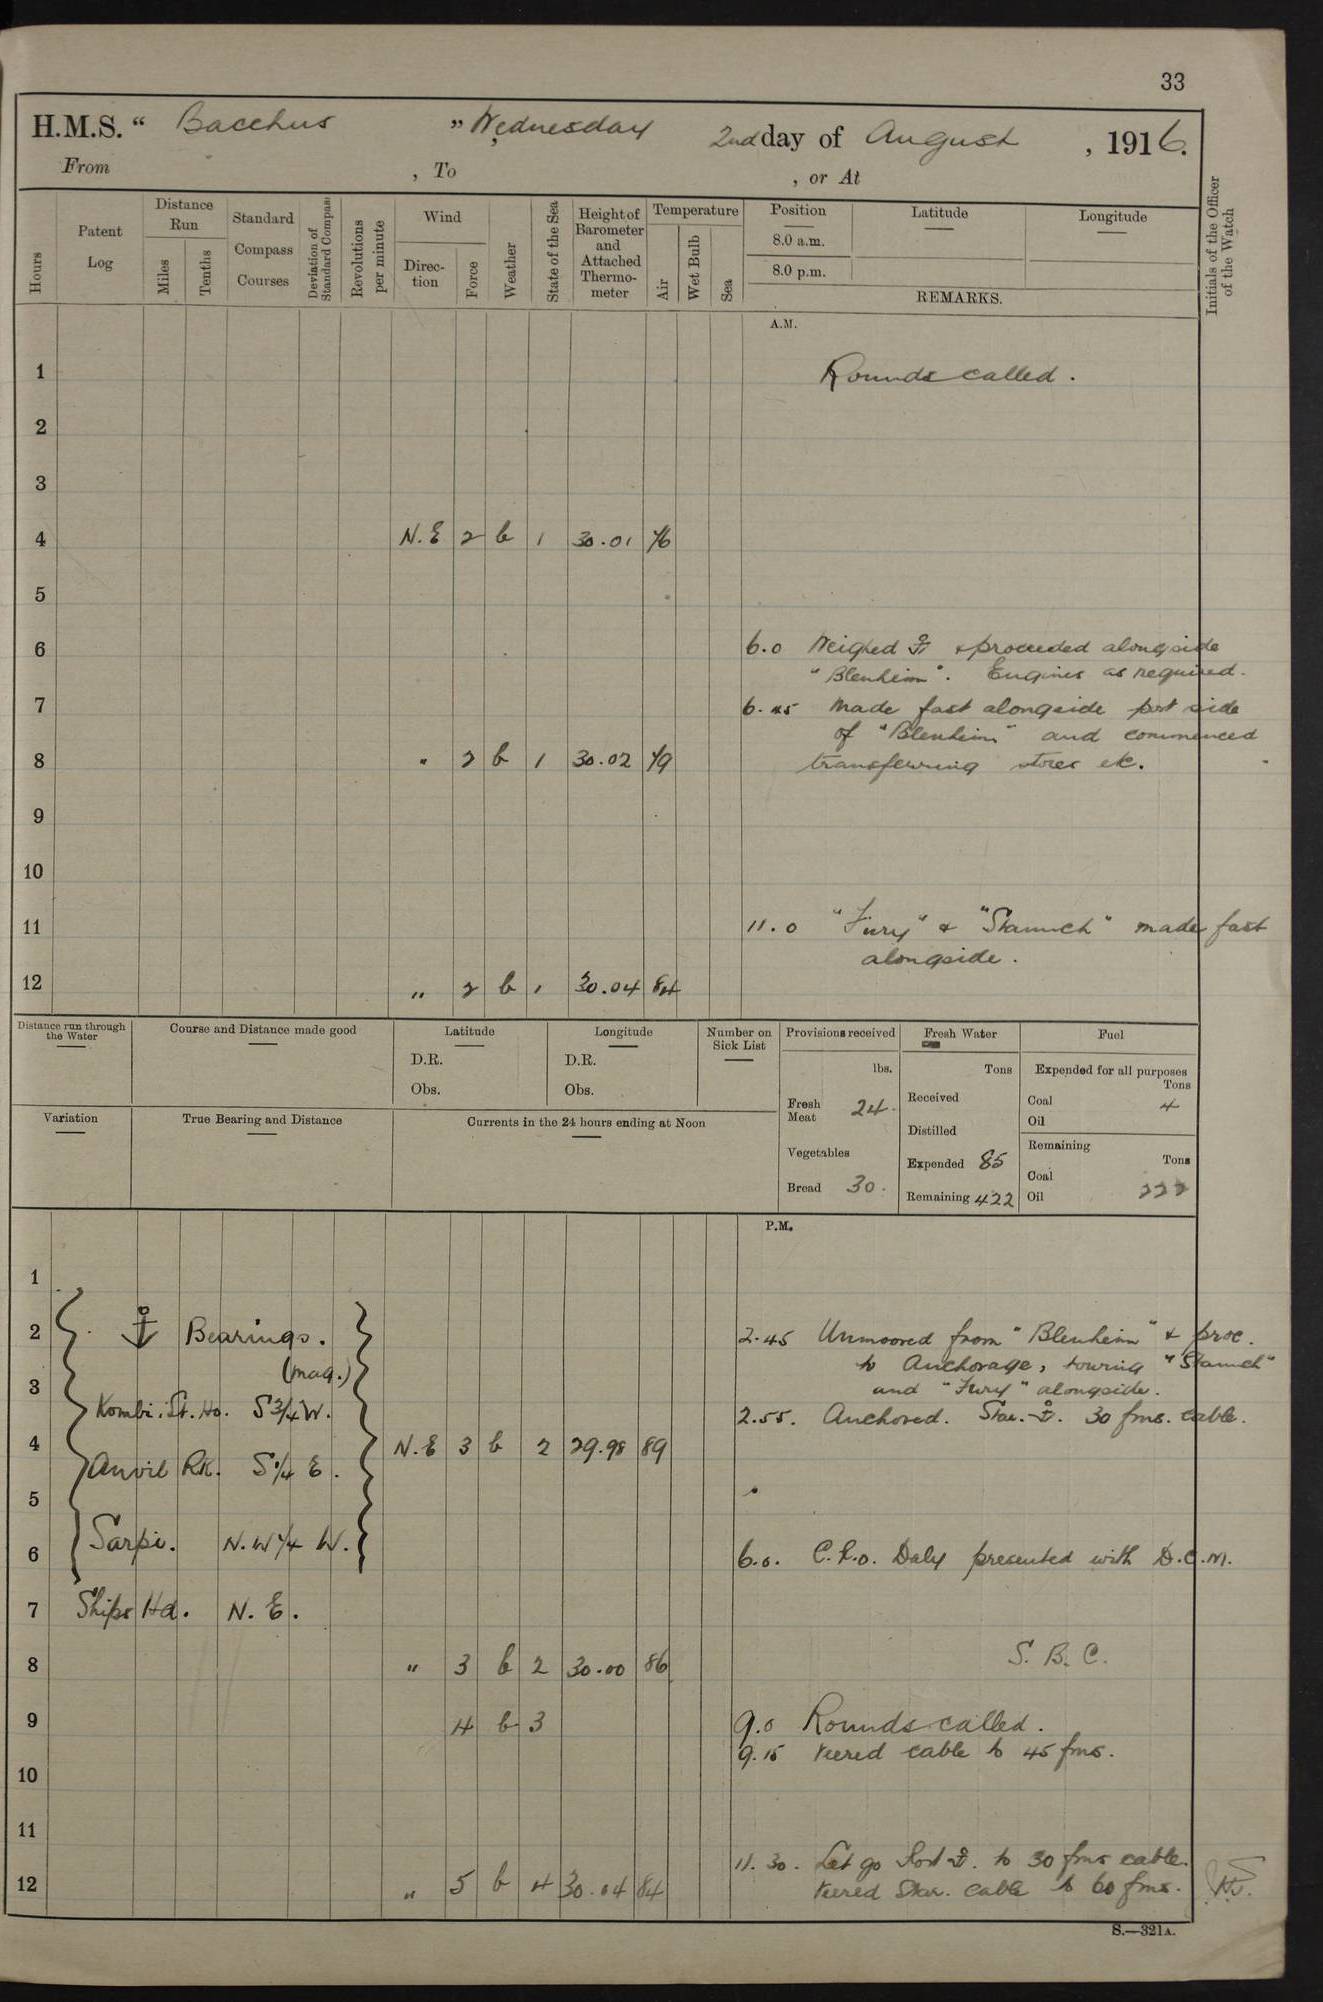 33
H.M.S. " Bacchus " Wednesday 2nd day of August , 1916.
From , To , or At
Hours
Patent Log
Distance Run
Miles
Tenths
Standard Compass Courses
Deviation of Standard Compass
Revolutions per minute
Wind
Direction
Force
Weather
State of the Sea
Height of Barometer and Attached Thermometer
Temperature
Air
Wet Bulb
Sea
Position
8.0 a.m.
8.0 p.m.
Latitude
Longitude
REMARKS.
Initials of the Officer of the Watch
A.M.
1 Rounds called.
2
3
4 N.E 2 b 1 30.01 76
5
6 6.0 Weighed ⚓ & proceeded alongside
"Blenheim". Engines as required.
7 6.45 Made fast alongside port side
of "Blenheim" and commenced
8 " 2 b 1 30.02 79 transferring stores etc.
9
10
11 11.0 "Fury" & "Staunch" made fast
alongside.
12 " 2 b 1 30.04 84
Distance run through the Water
Course and Distance made good
Latitude
D.R.
Obs.
Longitude
D.R.
Obs.
Number on Sick List
Provisions received
lbs.
Fresh Meat 24.
Vegetables
Bread 30.
Fresh Water
Tons
Received
Distilled
Expended 85
Remaining 422
Fuel
Expended for all purposes
Tons
Coal 4
Oil
Remaining
Tons
Coal
Oil 222
Variation
True Bearing and Distance
Currents in the 24 hours ending at Noon
P.M.
1
2 ⚓ Bearings. 2.45 Unmoored from "Blenheim" & proc.
(mag.) to Anchorage, towing "Staunch"
3 and "Fury" alongside.
Kombi. Lt. Ho. S 3/4 W. 2.55. Anchored. Star. ⚓. 30 fms. cable.
4 N.E 3 b 2 29.98 89
Anvil Rk. S 1/4 E.
5
Sarpi. N.W 1/4 W.
6 6.0. C.P.O. Daly presented with D.C.M.
7 Ships Hd. N.E.
S. B. C.
8 " 3 b 2 30.00 86
9 4 b 3 9.0 Rounds called.
9.15 Veered cable to 45 fms.
10
11
11.30. Let go Port ⚓. to 30 fms cable.
12 " 5 b 4 30.04 84 Veered Star. cable to 60 fms.
S.—321A.